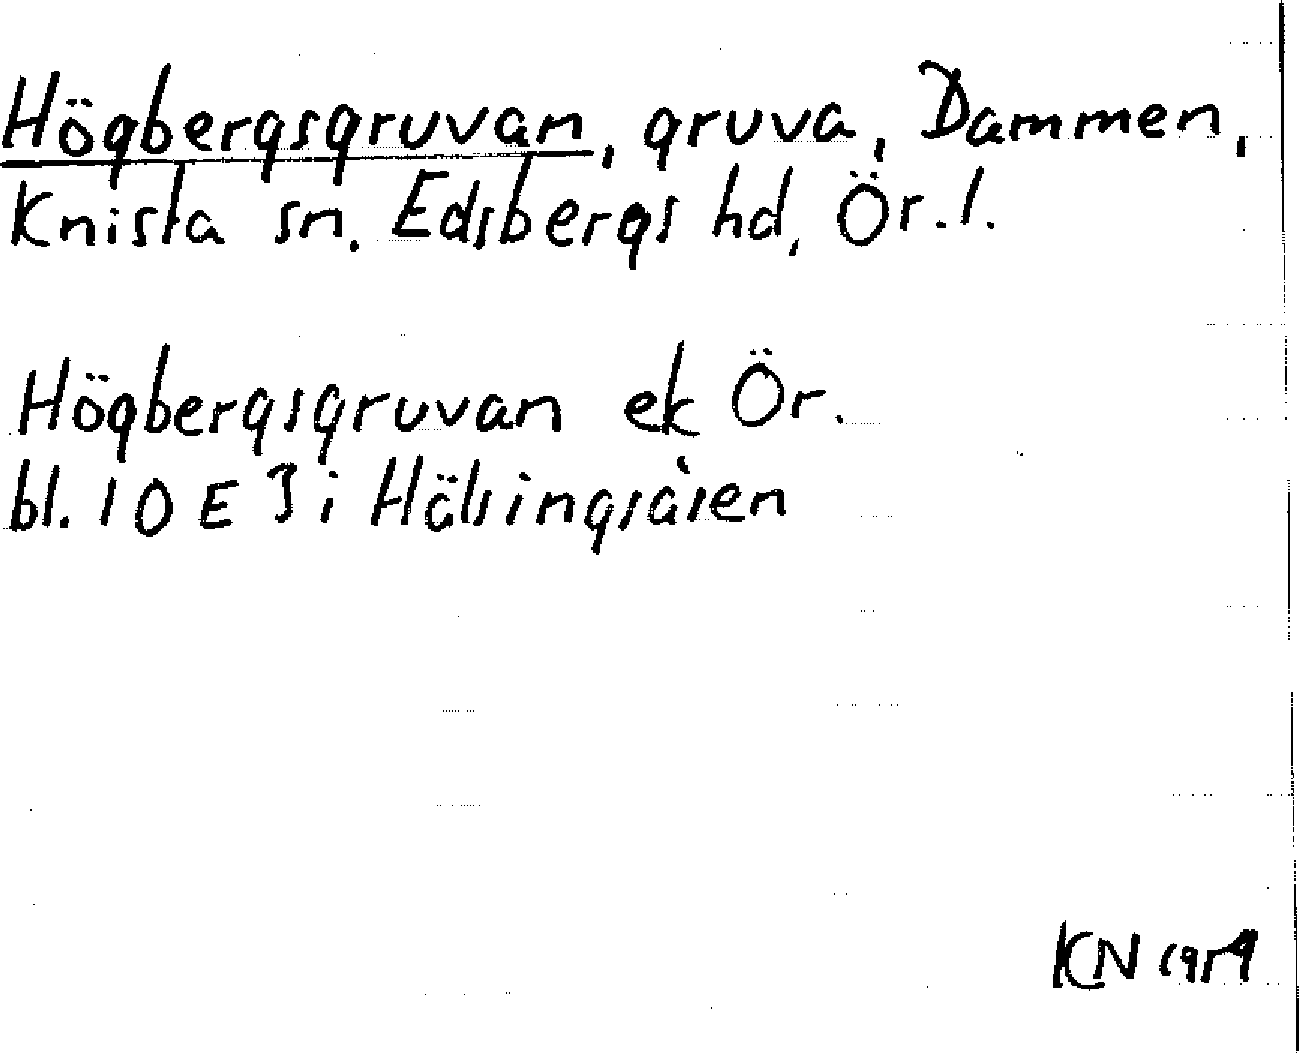 Högbergsgruvan, gruva, Dammen,
Knista sn. Edsbergs hd, Ör. l.
Högbergsgruvan ek Ör.
bl. 10 E 3 i Hälsingsåsen
KN 1959